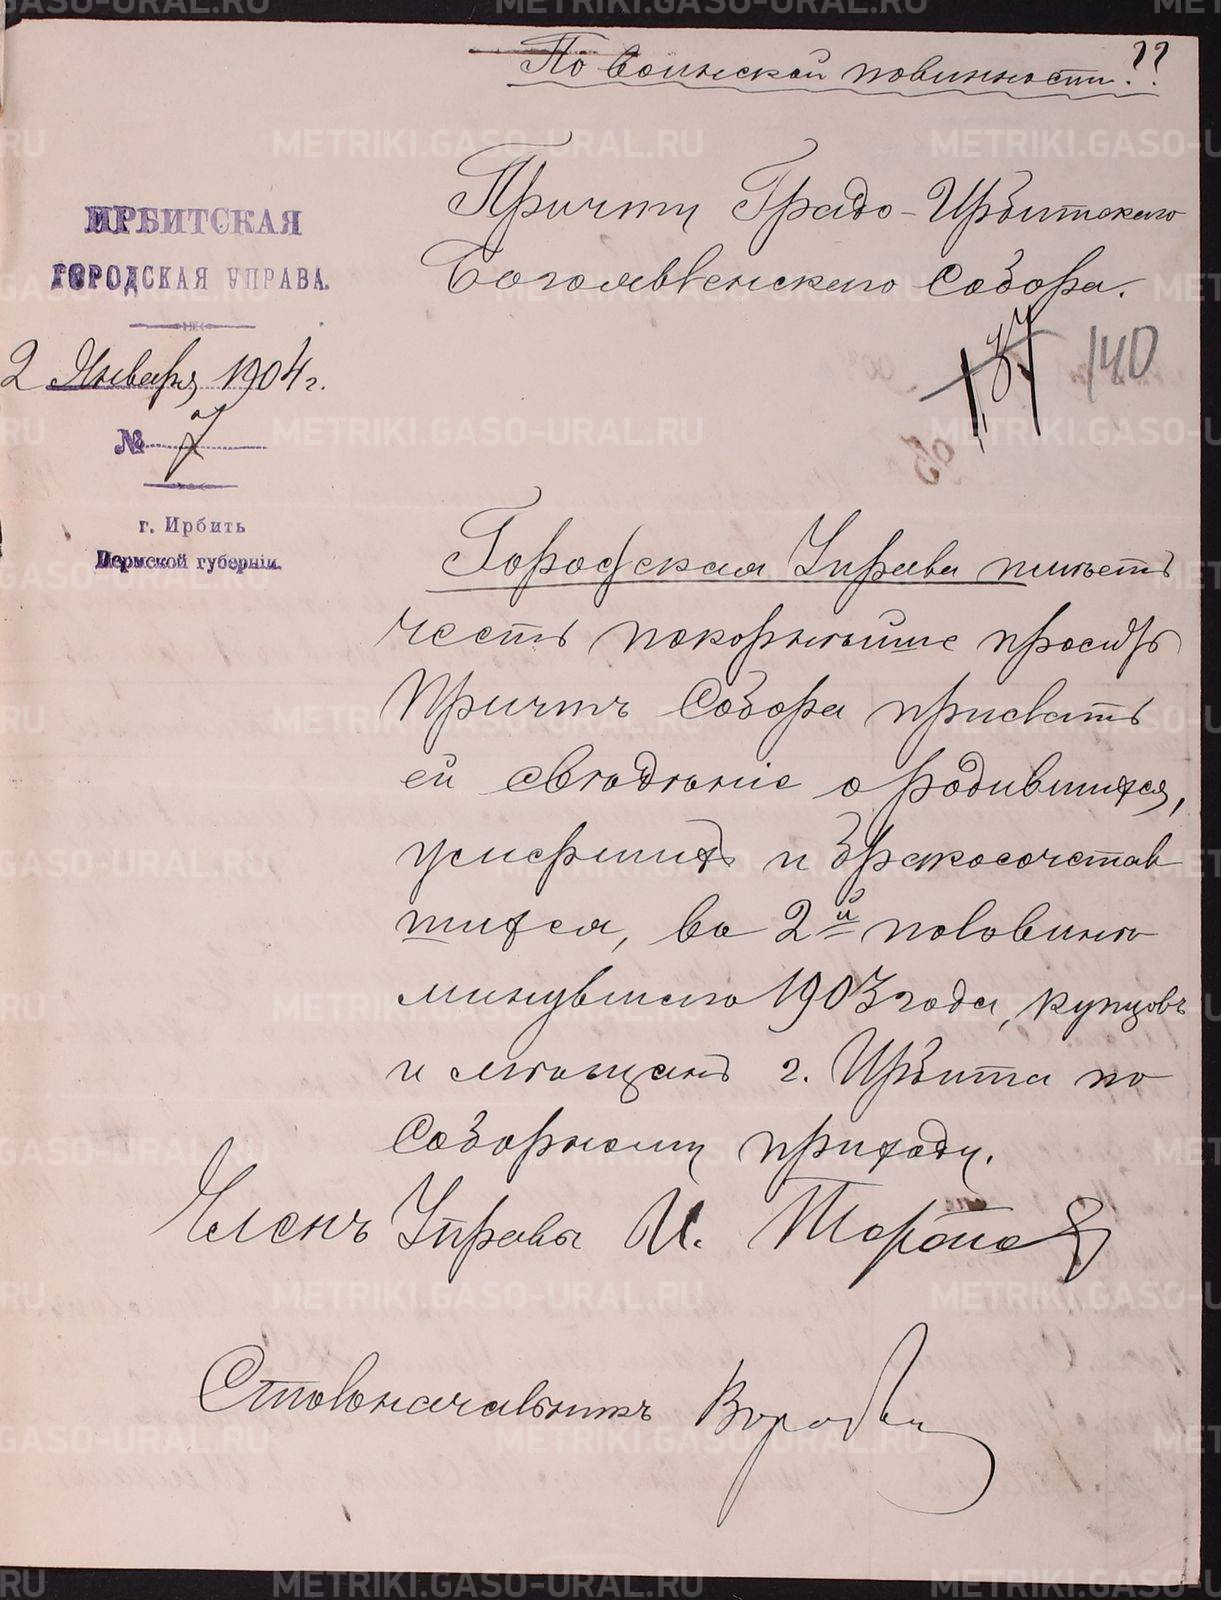 По воинской повинности.
Причту Градо-Ирбитскаго
Богоявленскаго Собора.
ИРБИТСКАЯ
ГОРОДСКАЯ УПРАВА.
2 Января 1904 г.
№ 7
г. Ирбить
Пермской губерніи.
187 140
Городская Управа имѣетъ
честь покорнѣйше просить
Причтъ Собора прислать
ей свѣдѣніе о родившихся,
умершихъ и бракосочетав
шихся, во 2й половинѣ
минувшаго 1903 года, купцовъ
и мѣщанъ г. Ирбита по
Соборному приходу.
Членъ Управы И.
Столоначальникъ
METRIKI.GASO-URAL.RU